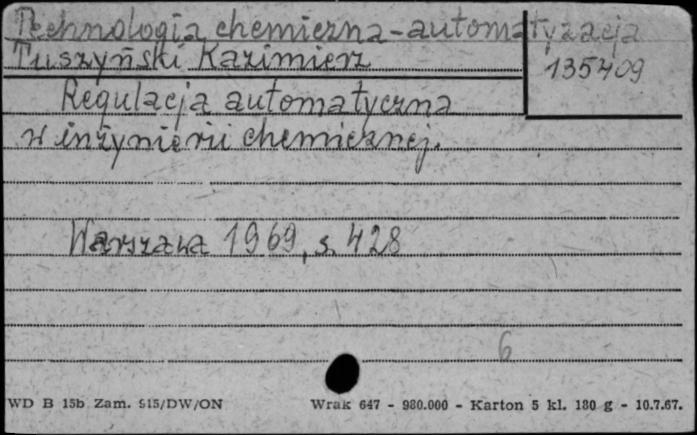 Technologia chemiczna - automatyzacja
Tuszyński Kazimierz
135409
Regulacja automatyczna
w inżynierii chemicznej.
Warszawa 1969, s. 428
6
WD B 15b Zam. 915/DW/ON Wrak 647 - 980.000 - Karton 5 kl. 180 g - 10.7.67.